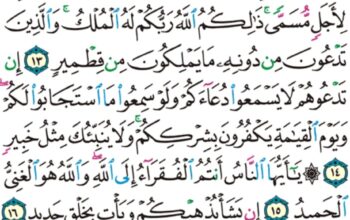 لِأَجَلٍ مُّسَمًّى ۚ ذَٰلِكُمُ ٱللَّهُ رَبُّكُمْ لَهُ ٱلْمُلْكُ ۚ وَٱلَّذِينَ
تَدْعُونَ مِن دُونِهِۦ مَا يَمْلِكُونَ مِن قِطْمِيرٍ ١٣ إِن
تَدْعُوهُمْ لَا يَسْمَعُوا۟ دُعَآءَكُمْ وَلَوْ سَمِعُوا۟ مَا ٱسْتَجَابُوا۟ لَكُمْ ۖ
وَيَوْمَ ٱلْقِيَٰمَةِ يَكْفُرُونَ بِشِرْكِكُمْ ۚ وَلَا يُنَبِّئُكَ مِثْلُ خَبِيرٍ
١٤ ۞ يَٰٓأَيُّهَا ٱلنَّاسُ أَنتُمُ ٱلْفُقَرَآءُ إِلَى ٱللَّهِ ۖ وَٱللَّهُ هُوَ ٱلْغَنِىُّ
ٱلْحَمِيدُ ١٥ إِن يَشَأْ يُذْهِبْكُمْ وَيَأْتِ بِخَلْقٍ جَدِيدٍ ١٦